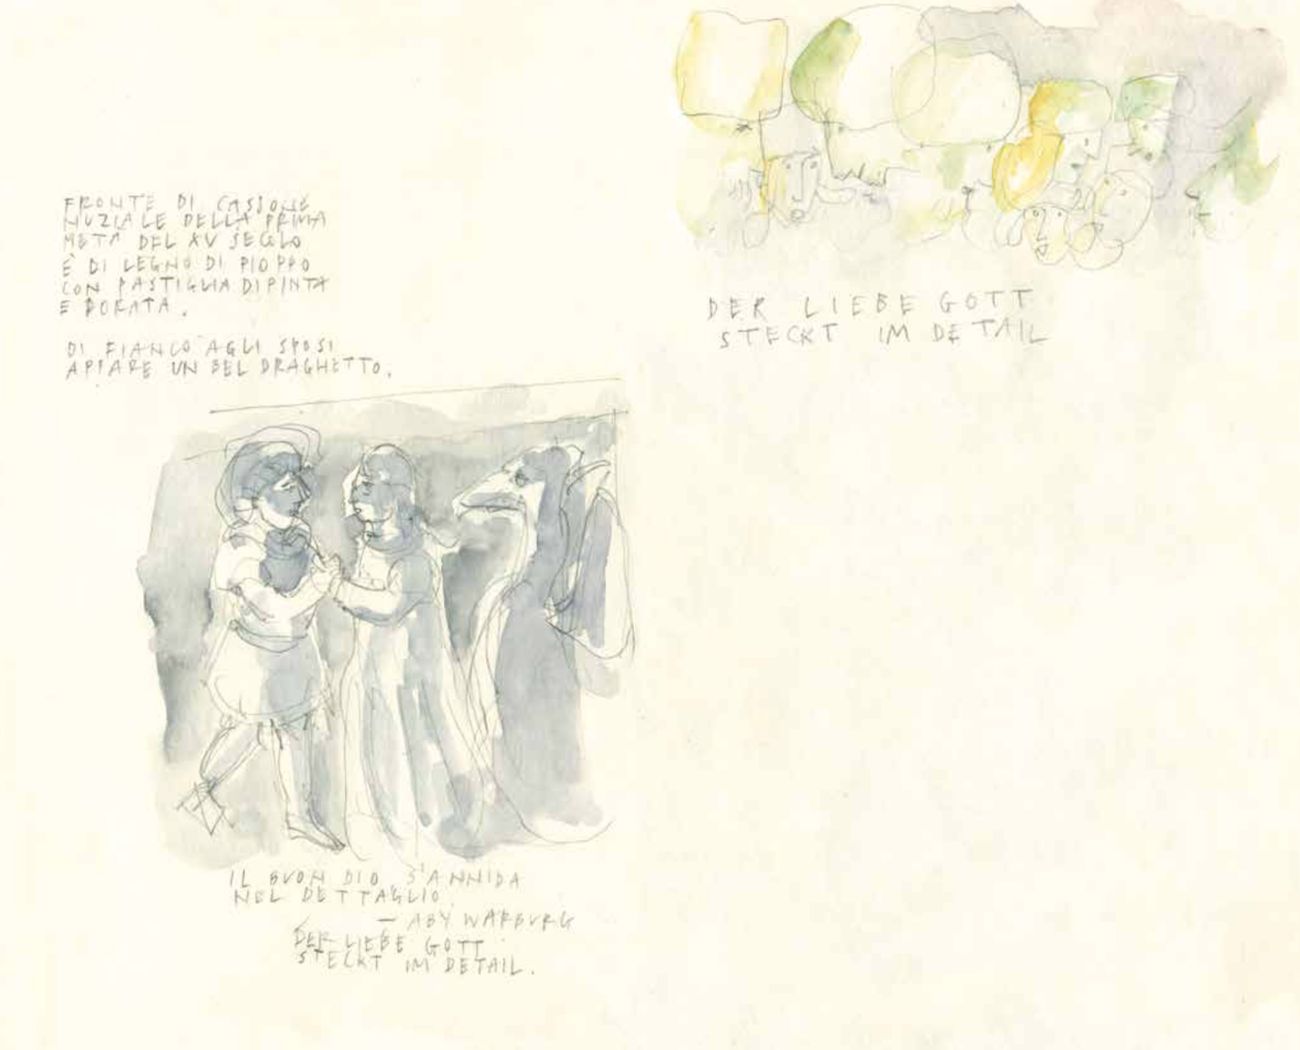 FRONTE DI CASSONE
NUZIALE DELLA PRIMA
METÀ DEL XV SECOLO
È DI LEGNO DI PIOPPO
CON PASTIGLIA DIPINTA
E DORATA.
DI FIANCO AGLI SPOSI
APPARE UN BEL DRAGHETTO.
IL BUON DIO S'ANNIDA
NEL DETTAGLIO.
— ABY WARBURG
DER LIEBE GOTT
STECKT IM DETAIL.
DER LIEBE GOTT
STECKT IM DETAIL